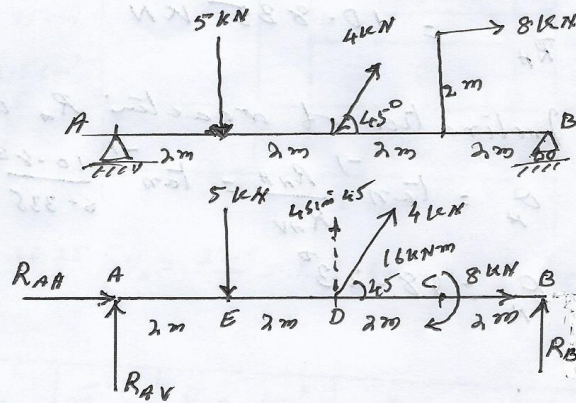 5 KN
4 KN
8 KN
2 m
A
45°
B
2 m 2 m 2 m 2 m
5 KN
4 sin 45
4 KN
16 KNm
R_AH A 45 C 8 KN B
2 m E 2 m D 2 m 2 m
R_AV
R_B